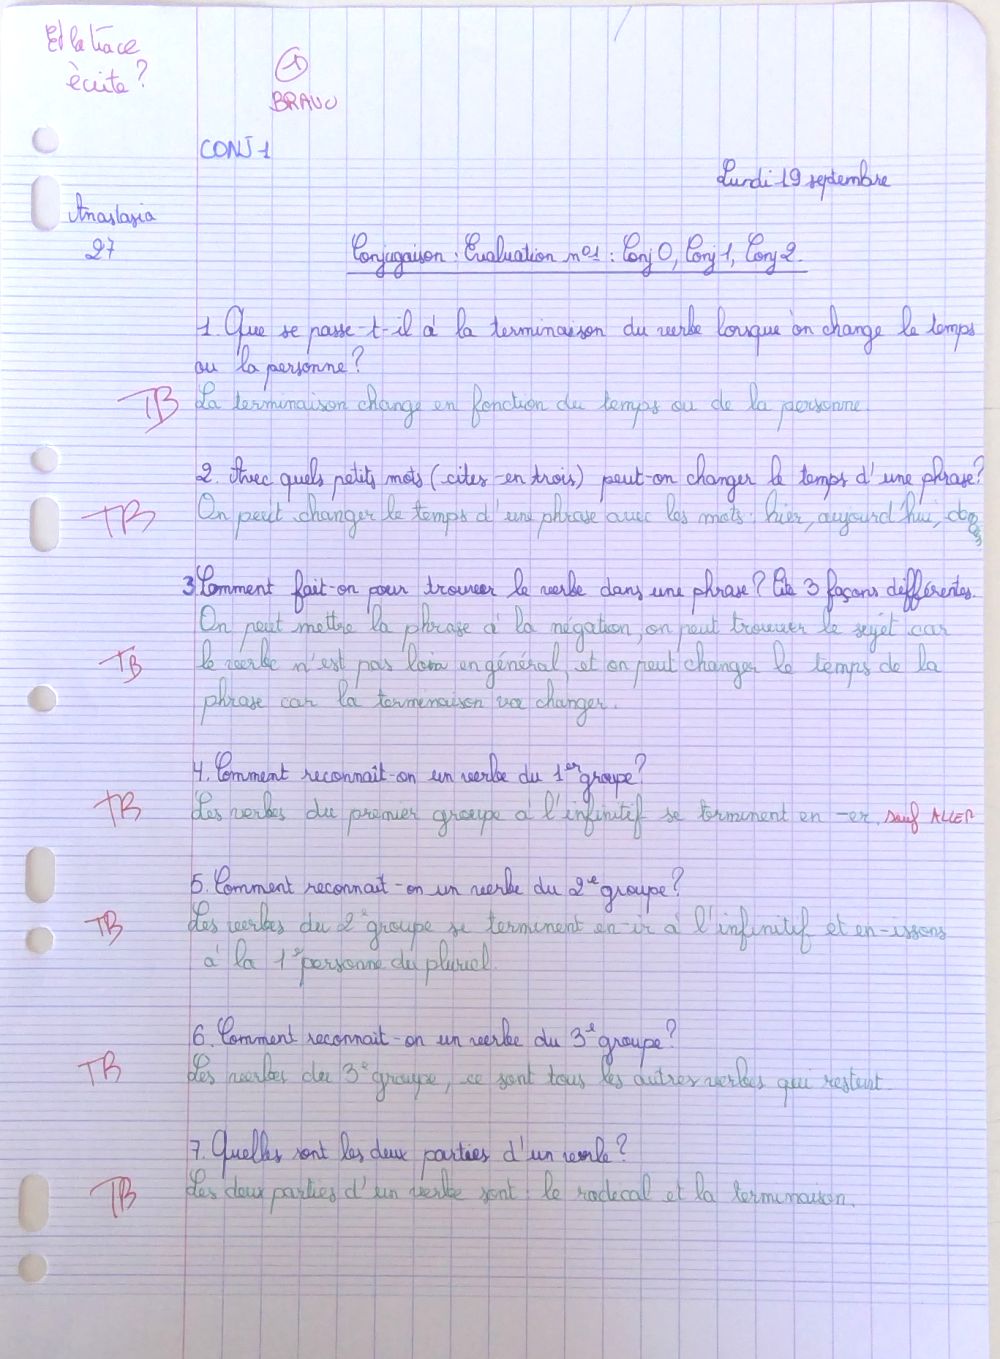 Et la trace
écrite?
BRAVO
CONJ 1
Lundi 19 septembre
Anastasia
27
Conjugaison : Evaluation n°1 : Conj 0, Conj 1, Conj 2.
1. Que se passe-t-il à la terminaison du verbe lorsque on change le temps
ou la personne?
TB La terminaison change en fonction du temps ou de la personne.
2. Avec quels petits mots (cites-en trois) peut-on changer le temps d'une phrase?
TB On peut changer le temps d'une phrase avec les mots : hier, aujourd'hui,
3 Comment fait-on pour trouver le verbe dans une phrase? Cite 3 façons différentes.
On peut mettre la phrase à la négation, on peut trouver le sujet car
TB le verbe n'est pas loin en général, et on peut changer le temps de la
phrase car la terminaison va changer.
4. Comment reconnaît-on un verbe du 1er groupe?
TB Les verbes du premier groupe à l'infinitif se terminent en -er. sauf ALLER
5. Comment reconnait-on un verbe du 2e groupe?
TB Les verbes du 2e groupe se terminent en -ir à l'infinitif et en -issons
à la 1e personne du pluriel.
6. Comment reconnait-on un verbe du 3e groupe?
TB Les verbes du 3e groupe, ce sont tous les autres verbes qui restent.
7. Quelles sont les deux parties d'un verbe?
TB Les deux parties d'un verbe sont : le radical et la terminaison.